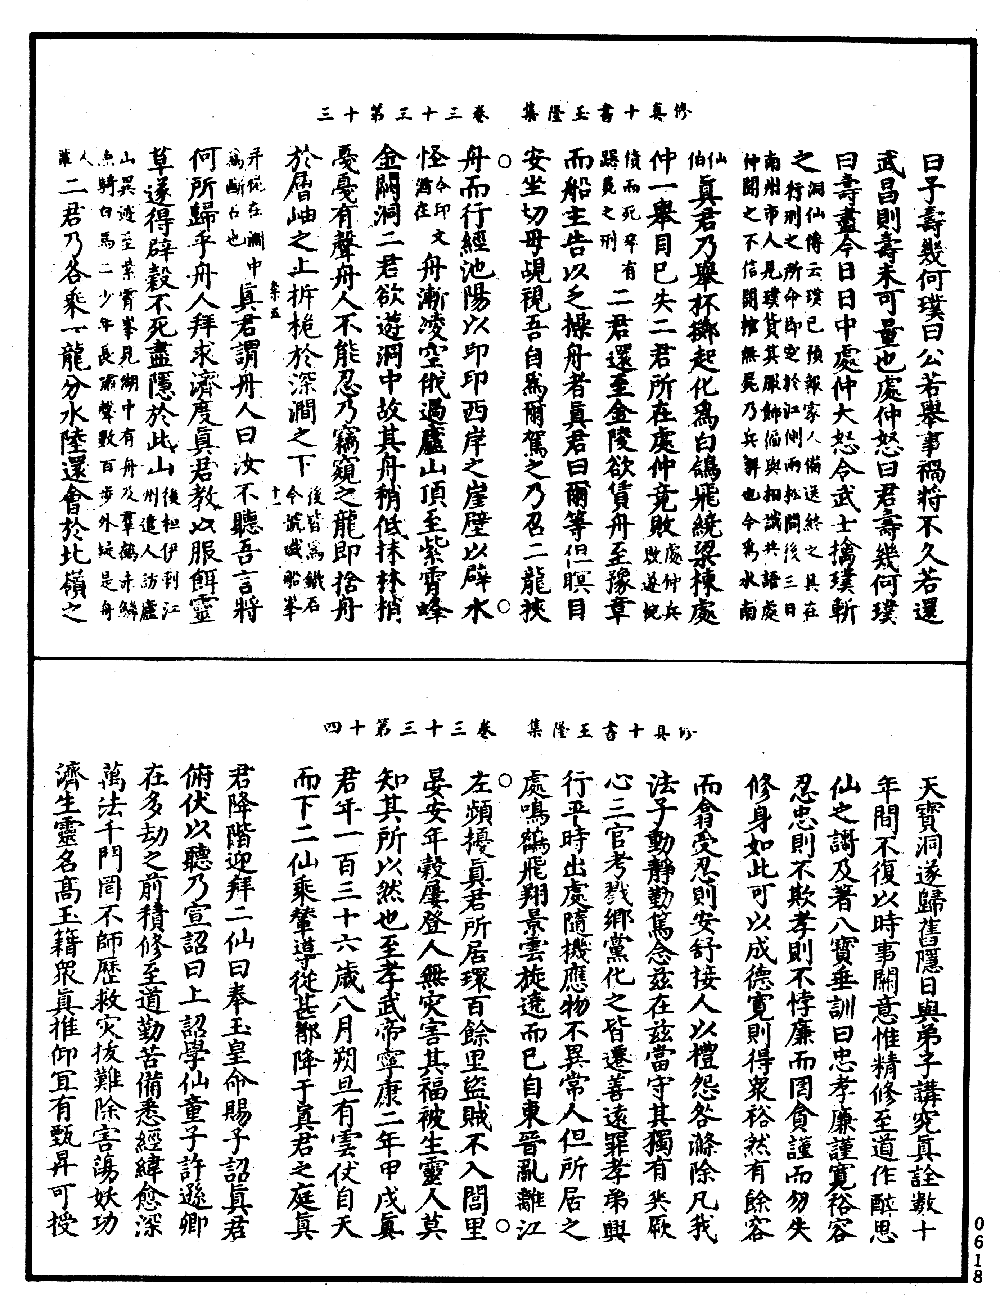 修真十書玉隆集　卷三十三第十三
曰子壽幾何璞曰公若舉事禍將不久若還
武昌則壽未可量也處仲怒曰君壽幾何璞
曰壽盡今日日中處仲大怒令武士擒璞斬
之洞仙傳云璞已預報家人備送終之具在
行刑之所命即窆於江側兩松間後三日
南州市人見璞貨其服飾徧與相識共語處
仲聞之不信開棺無屍乃兵解也今為水南
仙伯真君乃舉杯擲起化為白鴿飛繞梁棟處
仲一舉目已失二君所在處仲竟敗處仲兵敗遂
憤而死卒有
跽屍之刑二君還至金陵欲賃舟至豫章
而船主告以乏操舟者真君曰爾等但瞑目
安坐切毋覘視吾自為爾駕之乃召二龍挾
舟而行經池陽以印印西岸之崖壁以辟水
怪今印文猶在舟漸凌空俄過廬山頂至紫霄峰
金闕洞二君欲遊洞中故其舟稍低抹林梢
戞戞有聲舟人不能忍乃竊窺之龍即捨舟
於層岫之上拆桅於深澗之下後皆為鐵石今號鐵船峯
真君謂舟人曰汝不聽吾言將
何所歸乎舟人拜求濟度真君教以服餌靈
草遂得辟穀不死盡隱於此山後桓伊到江州遣人訪廬
山異迹至紫霄峯見湖中有舟及羣鶴赤鱗
魚騎白馬二少年長嘯聲數百步外疑是舟
人二君乃各乘一龍分水陸還會於北嶺之
修真十書玉隆集　卷三十三第十四
天寶洞遂歸舊隱日與弟子講究真詮數十
年間不復以時事關意惟精修至道作醉思
仙之謌及著八寶垂訓曰忠孝廉謹寬裕容
忍忠則不欺孝則不悖廉而罔貪謹而勿失
修身如此可以成德寬則得眾裕然有餘容
而翕受忍則安舒接人以禮怨咎滌除凡我
法子動靜勤篤念茲在茲當守其獨有喪厥
心三官考戮鄉黨化之皆遷善遠罪孝弟興
行平時出處隨機應物不異常人但所居之
處鳴鶴飛翔景雲旋遶而已自東晉亂離江
左頻擾真君所居環百餘里盜賊不入閭里
晏安年穀屢登人無灾害其福被生靈人莫
知其所以然也至孝武帝寧康二年甲戌真
君年一百三十六歲八月朔旦有雲仗自天
而下二仙乘輦導從甚都降于真君之庭真
君降階迎拜二仙曰奉玉皇命賜子詔真君
俯伏以聽乃宣詔曰上詔學仙童子許遜卿
在多劫之前積修至道勤苦備悉經緯愈深
萬法千門罔不師歷救灾拔難除害蕩妖功
濟生靈名高玉籍眾真推仰宜有甄昇可授
0618